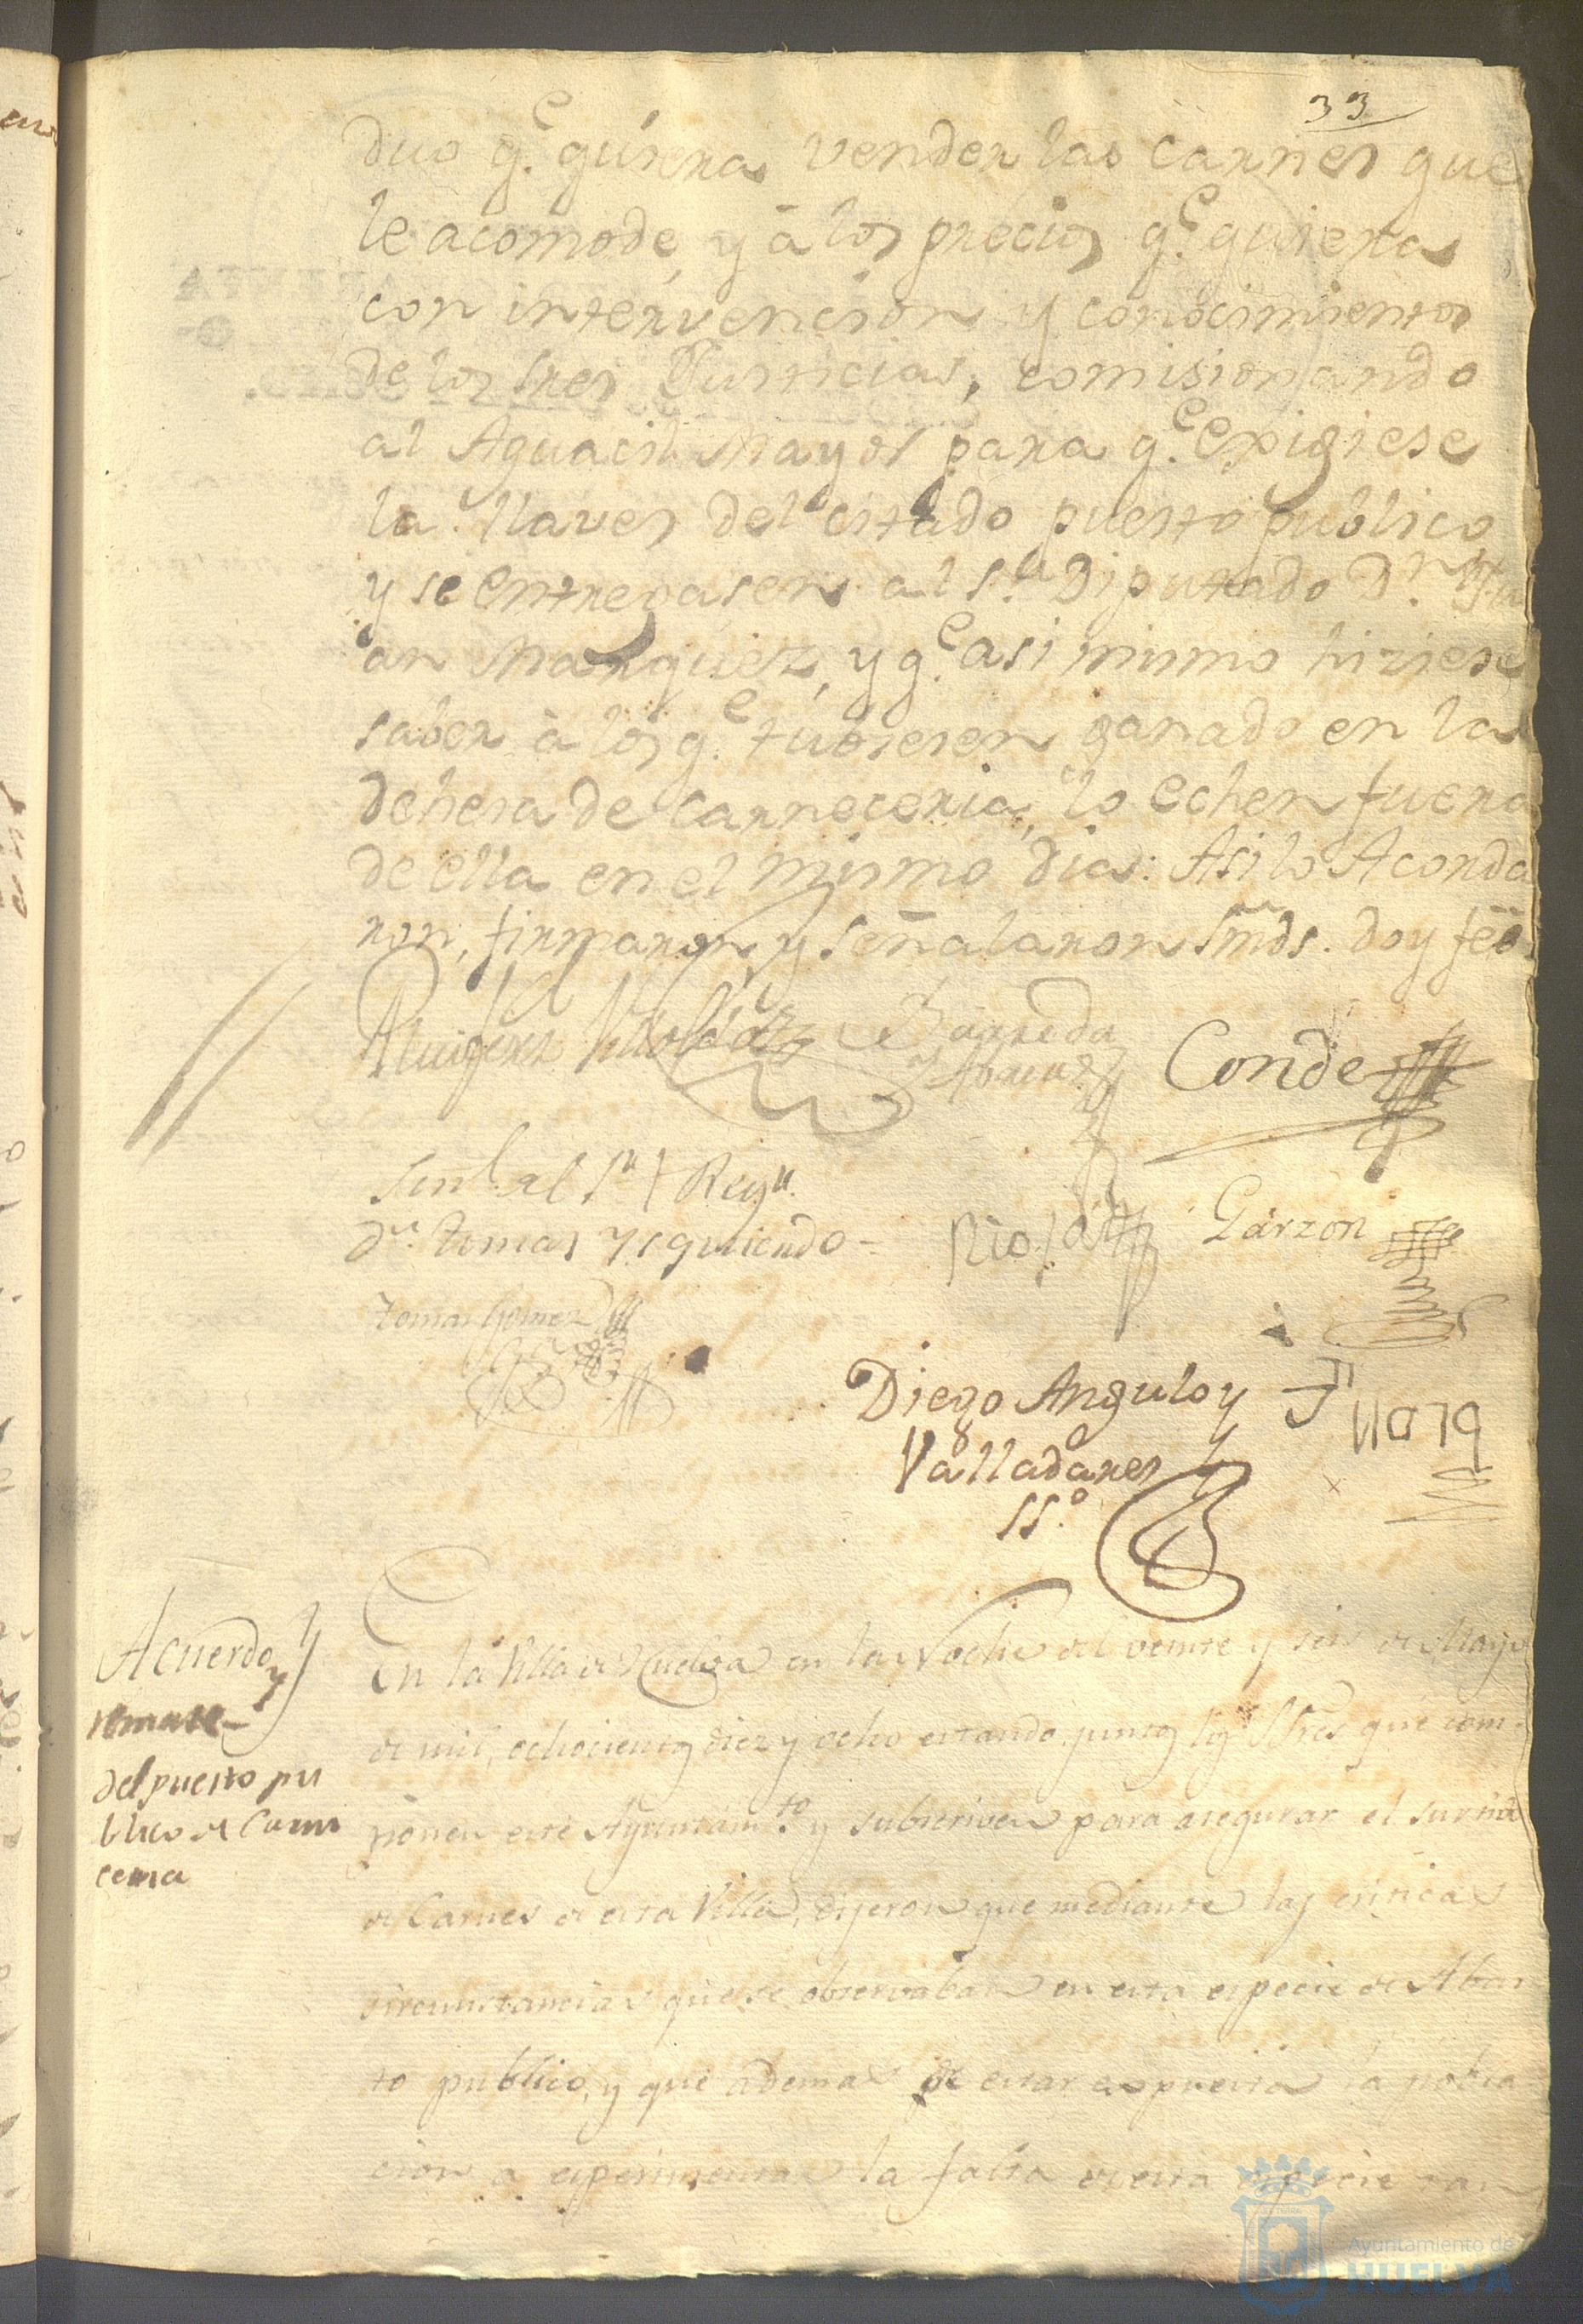 33
duo q.e quisiera vender las carnes que
le acomode, y à los precios q.e quiera
con intervencion y conocimiento
de los Sres Justicias, comisionando
al Aguacil Mayor para q.e exigiese
la llaves del citado puesto publico
y se entregasen al S.or Diputado D.n Ju
an Marquez, y q.e asi mismo hiziese
saber à los q.e tubiesen ganado en la
dehesa de carneceria, lo echen fuera
de ella en el mismo dia: Asi lo Acorda
ron, firmaron, y señalaron Smds. doy feé
Barreda
Conde
Señl. del S.r + Reg.r
D.n Tomas Ysquierdo =
Garzon
Tomas Gomez
Diego Angulo y
Valladares
SS.o
Acuerdo y
remate
del puesto pu
blico de Carne
ceria
En la Villa de Huelva en la Noche del veinte y seis de Mayo
de mil, ochocientos diez y ocho estando juntos los Sres que com-
ponen este Ayuntam.to y subscriven para asegurar el surtido
de Carnes de esta Villa, dijeron que mediante las criticas
circunstancias que se observaban en esta especie de Abas
to publico, y que ademas de estar expuesta la pobla
cion a esperimentar la falta de esta especie tan
Ayuntamiento de
HUELVA